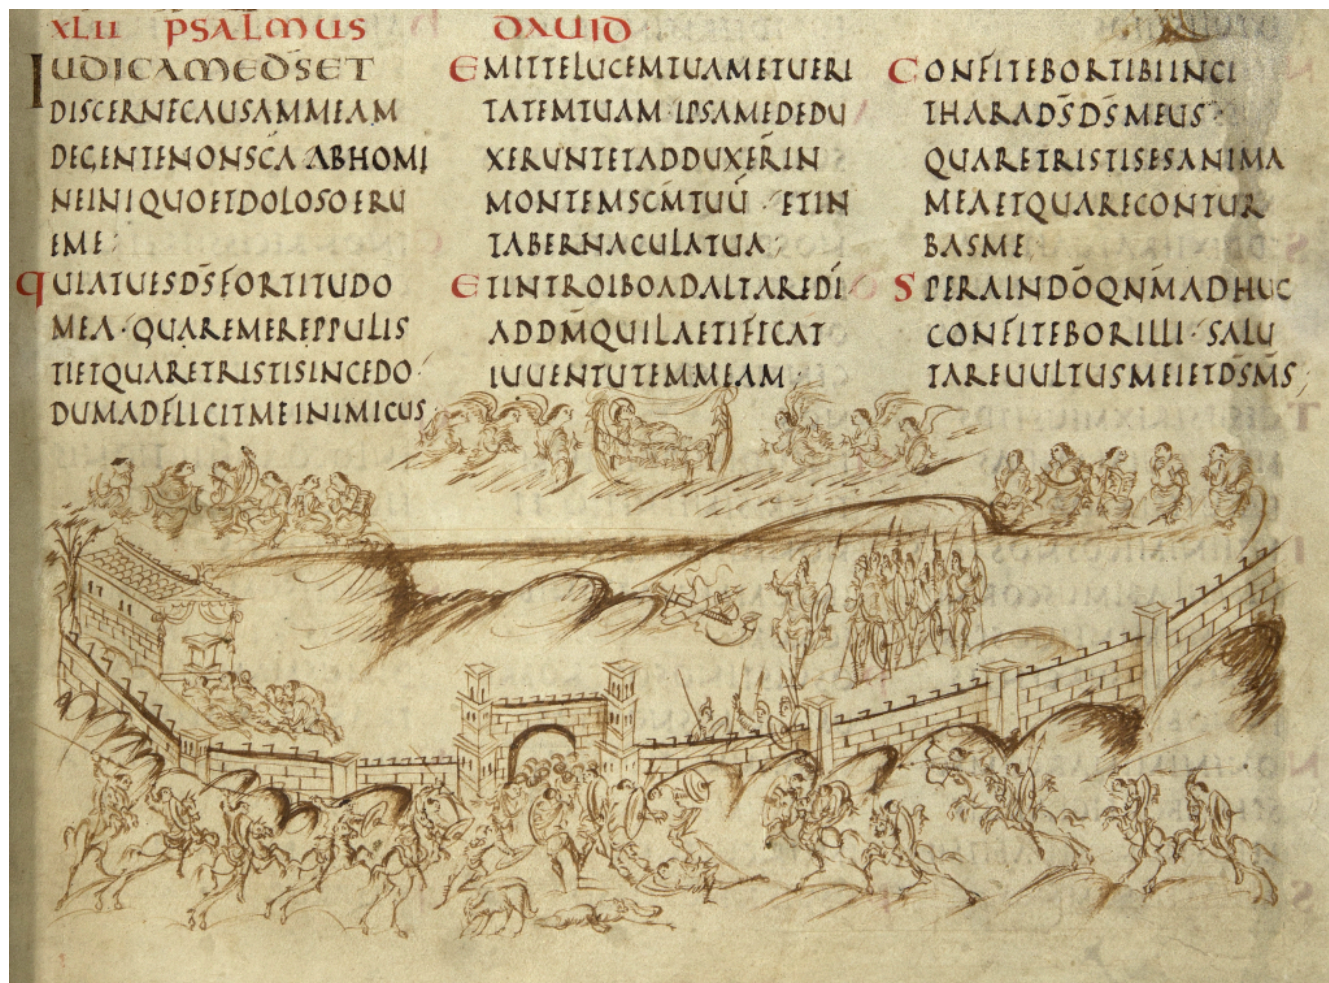 XLII PSALMUS DAUID
IUDICAMEDS̄ET
DISCERNECAUSAMMEAM
DEGENTENONSC̄A· ABHOMI
NEINIQUOETDOLOSOERU
EME:
QUIATUESDS̄FORTITUDO
MEA·QUAREMEREPPULIS
TIETQUARETRISTISINCEDO·
DUMADFLIGITMEINIMICUS·
EMITTELUCEMTUAMETUERI
TATEMTUAM·IPSAMEDEDU
XERUNTETADDUXER̄IN
MONTEMSCM̄TUŪ· ETIN
TABERNACULATUA·
ETINTROIBOADALTAREDĪ
ADDM̄QUILAETIFICAT
IUUENTUTEMMEAM·
CONFITEBORTIBIINCI
THARADS̄DS̄MEUS·
QUARETRISTISESANIMA
MEAETQUARECONTUR
BASME
SPERAINDŌQNM̄ADHUC
CONFITEBORILLI·SALU
TAREUULTUSMEIETDS̄MS̄·